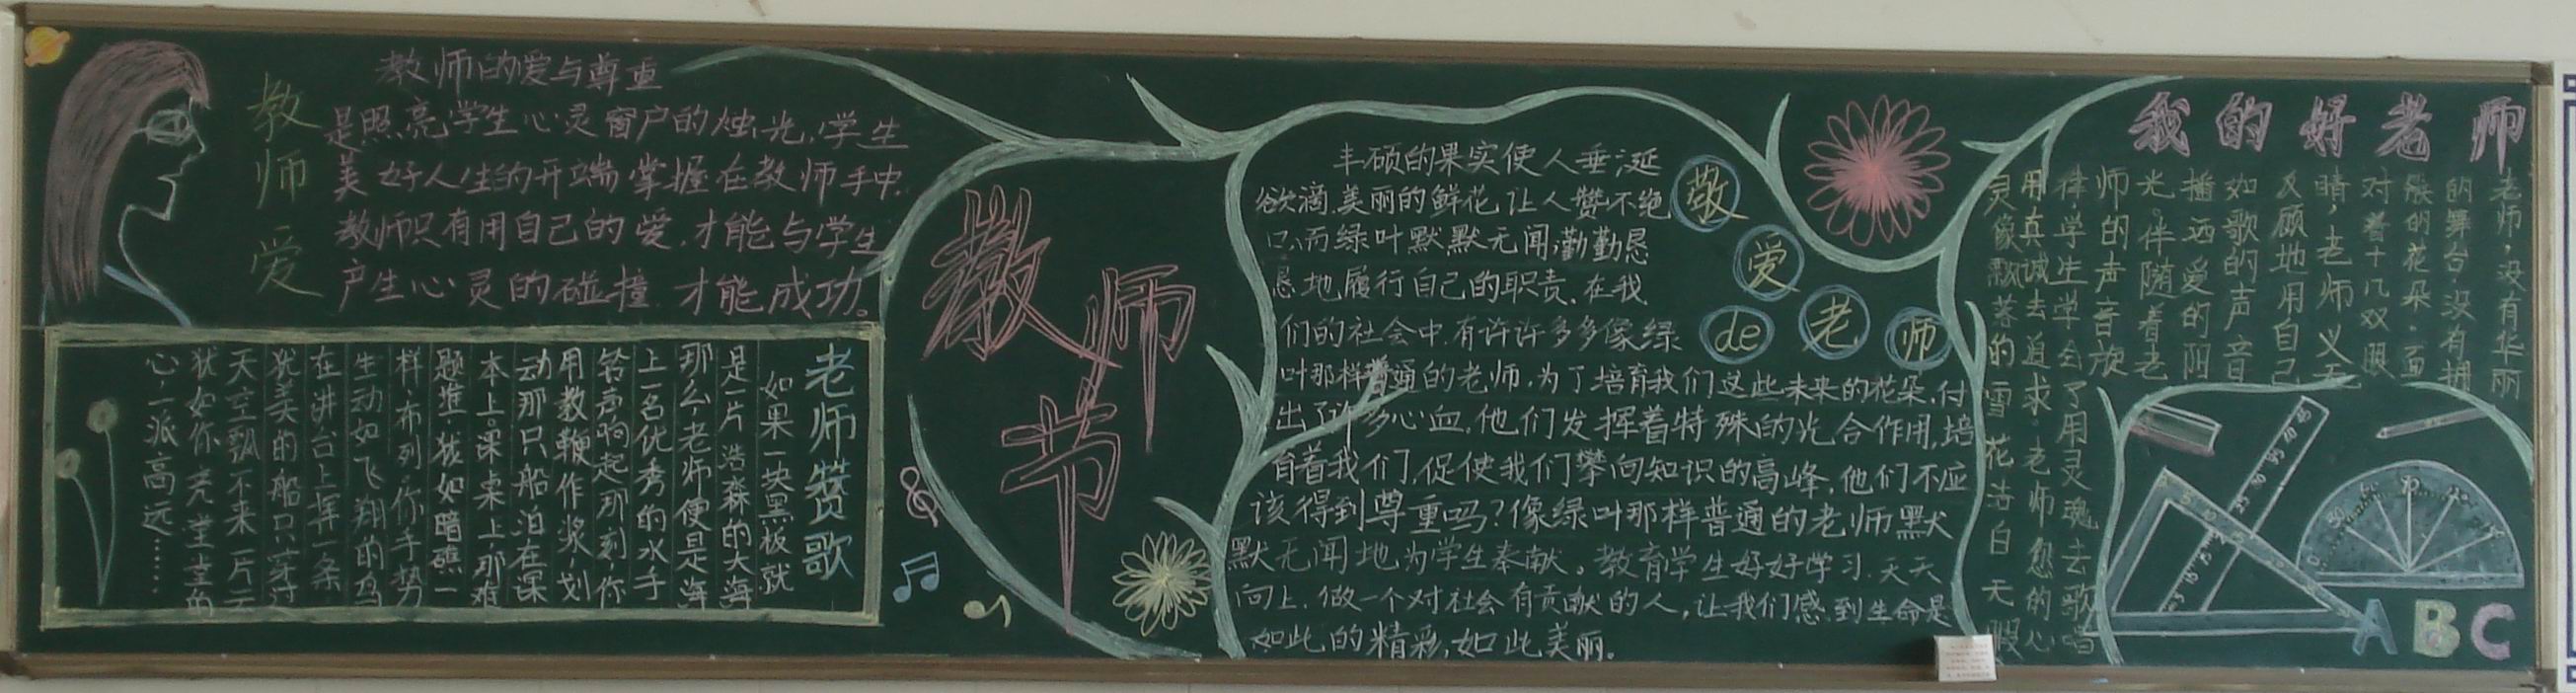 教师爱
教师的爱与尊重
是照亮学生心灵窗户的烛光,学生
美好人生的开端掌握在教师手中.
教师只有用自己的爱,才能与学生
产生心灵的碰撞.才能成功。
老师赞歌
如果一块黑板就
是一片浩淼的大海
那么,老师便是海
上一名优秀的水手
铃声响起那刻,你
用教鞭作浆,划
动那只船泊在课
本上。课桌上那难
题堆,犹如暗礁一
样,布列。你手势
生动如飞翔的鸟
在讲台上挥一条
犹美的船只穿过
天空飘不来一片云
犹如你亮堂堂的
心,一派高远……
教师节
丰硕的果实使人垂涎
欲滴,美丽的鲜花,让人赞不绝
口,而绿叶默默无闻,勤勤恳
恳地履行自己的职责.在我
们的社会中.有许许多多像绿
叶那样普通的老师,为了培育我们这些未来的花朵,付
出了许多心血.他们发挥着特殊的光合作用,培
育着我们,促使我们攀向知识的高峰,他们不应
该得到尊重吗?像绿叶那样普通的老师默
默无闻地为学生奉献。教育学生好好学习.天天
向上.做一个对社会有贡献的人,让我们感到生命是
如此的精彩,如此美丽。
敬爱de老师
我的好老师
老师,没有华丽
的舞台,没有拥
簇的花朵.面
对着十几双眼
睛,老师义无
反顾地用自己
如歌的声音
播洒爱的阳
光。伴随着老
师的声音放
伴学生学会了用灵魂去歌唱
用真诚去追求.老师您的心
灵像飘落的雪花洁白无暇
ABC